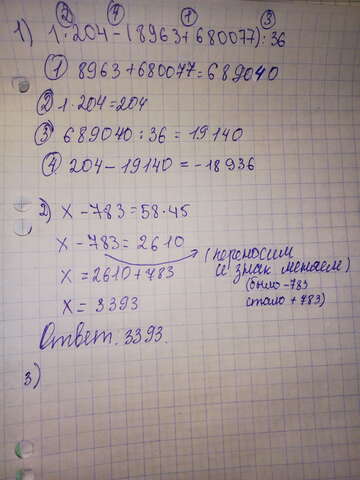 ② ④ ① ③
1) 1·204-(8963+680077):36
① 8963+680077=689040
② 1·204=204
③ 689040:36=19140
④ 204-19140=-18936
2) x-783=58·45
x-783=2610
(переносим
и знак меняем)
x=2610+783
(было -783
стало +783)
x=3393
Ответ: 3393
3)